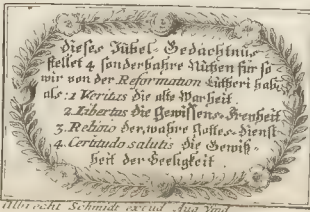 dieses Jubel-Gedächtnus
stellet 4 sonderbahre Nutzen für so
wir von der Reformation Lutheri habē
als: 1 Veritus die alte Warheit.
2. Libertas die Gewissens-Freyheit
3. Religio der wahre Gottes-Dienst
4. Certitudo salutis die Gewiß-
heit der Seeligkeit.
Albrecht Schmidt excud. Aug. Vind.